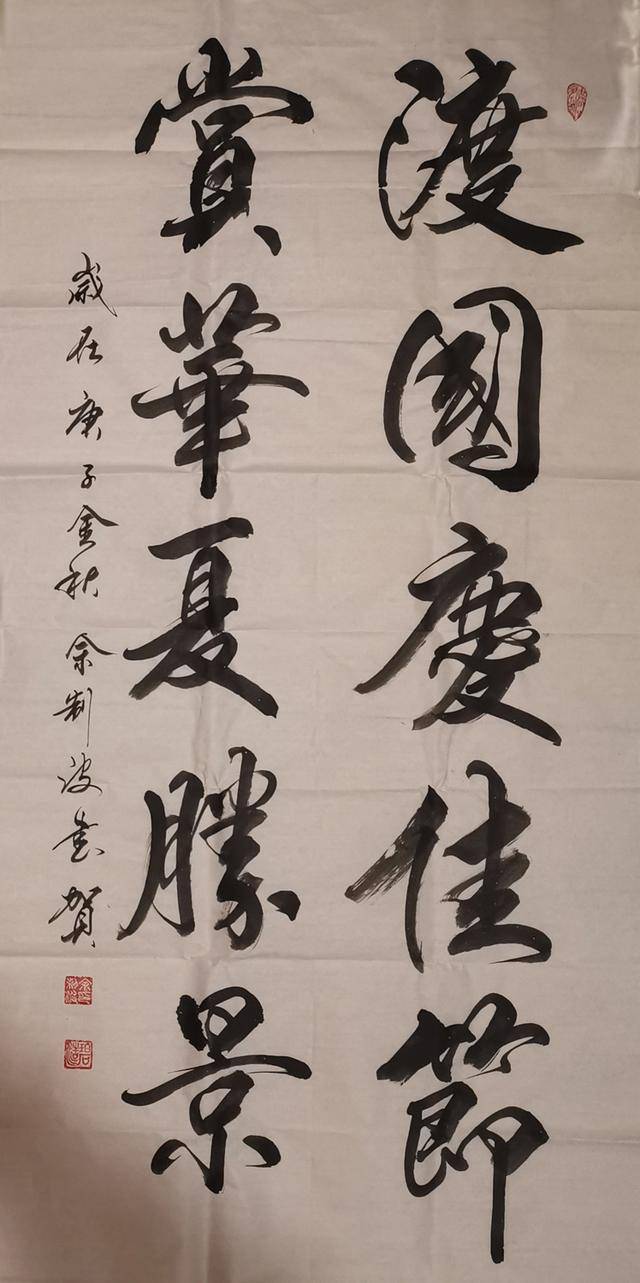 渡國慶佳節
賞華夏勝景
歲在庚子金秋余制波書賀